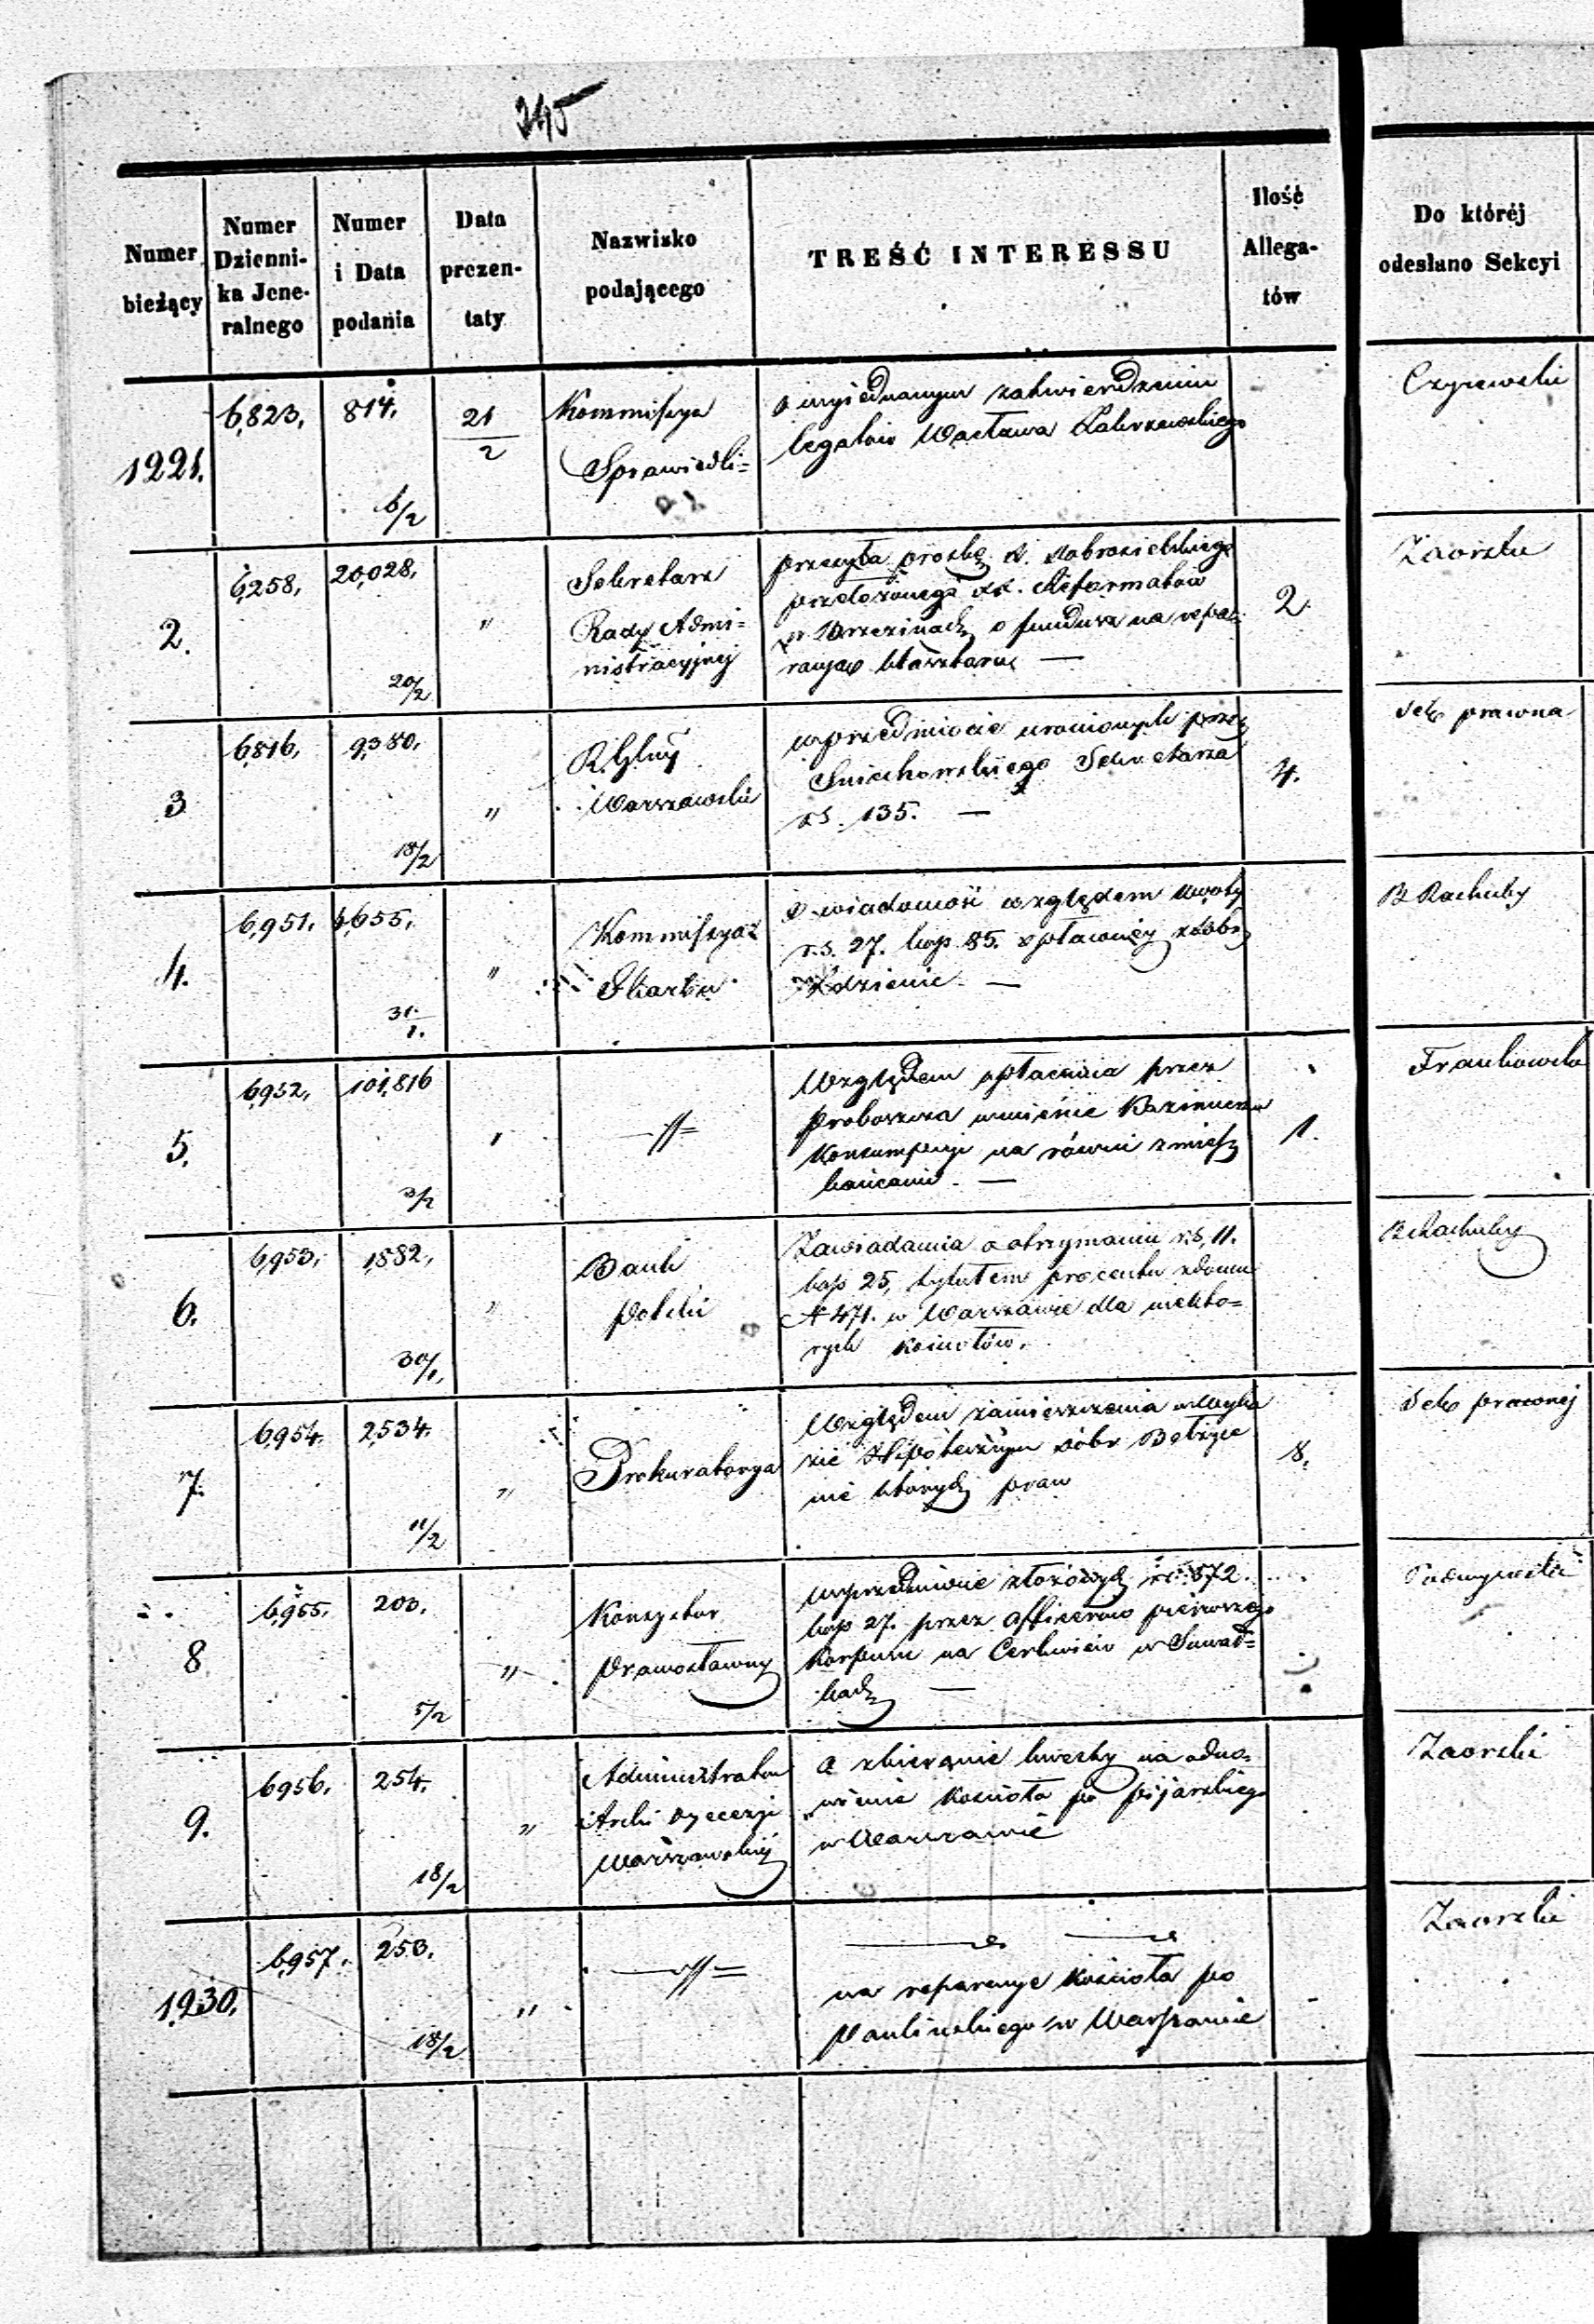 245
Numer bieżący
Numer Dzienni- ka Jene- ralnego
Numer i Data podania
Data prezen- taty
Nazwisko podającego
TREŚĆ INTERESSU
Ilość Allega- tów
Do któréj odesłano Sekcyi
1221. 6,823. 814. 6/2 21/2
Kommissya
Sprawiedli=
o wyjednanym zatwierdzeniu
legatów Wacława Zakrzewskiego
Czyzewski
2. 6,258. 20,028. 20/2 "
Sekretarz
Rady Admi=
nistracyjnej
przesyła prośbę X.
przełożonego XX. Reformatów
w Brzezinach o fundusz na repa=
racyą klasztoru —
2.
Zaorski
3 6816. 9380. 18/2 "
R. Glny
Warszawski
w przedmiocie uronionych przez
Sekretarza
rs. 135. —
4.
Sek prawna
4. 6,951. 4,655. 31/1. "
Kommissya
Skarbu
o wiadomość względem kwoty
r.s. 27. kop 85. z dóbr
—
B Rachuby
5. 6,952. 101,816 3/2 "
—//=
Względem opłacania przez
proboszcza w mieście Kazimierzu
Konsumpcyi na równi z miesz
kańcami. —
1.
Frankowski
6. 6,953. 1,882. 30/1. "
Bank
Polski
Zawiadamia o otrzymaniu r.s. 11.
kop 25, tytułem procentu z domu
N 471. w Warszawie dla niekto=
rych kościołów.
B Rachuby
7. 6,954. 2534. 11/2 "
Prokuratorya
Względem zamieszczenia w Wyka
zie Hipotecznym dóbr
nie których praw
8.
Sek prawnej
8 6,955. 203. 5/2 "
Konsystor
Prawosławny
w przedmiocie złożonych rs. 572.
kop 27. przez Officerow pierwszego
Korpusu na Cerkwiew w Suwał=
kach —
9. 6956. 254. 18/2 "
Administrator
Archi Dyecezji
Warszawskiej
o zbieranie kwesty na odno=
wienie Kościoła po pijarskiego
w Warszawie
Zaorski
1,230. 6,957. 253. 18/2 "
—//=
na reparacye Kościoła po
Paulińskiego w Warszawie
Zaorski